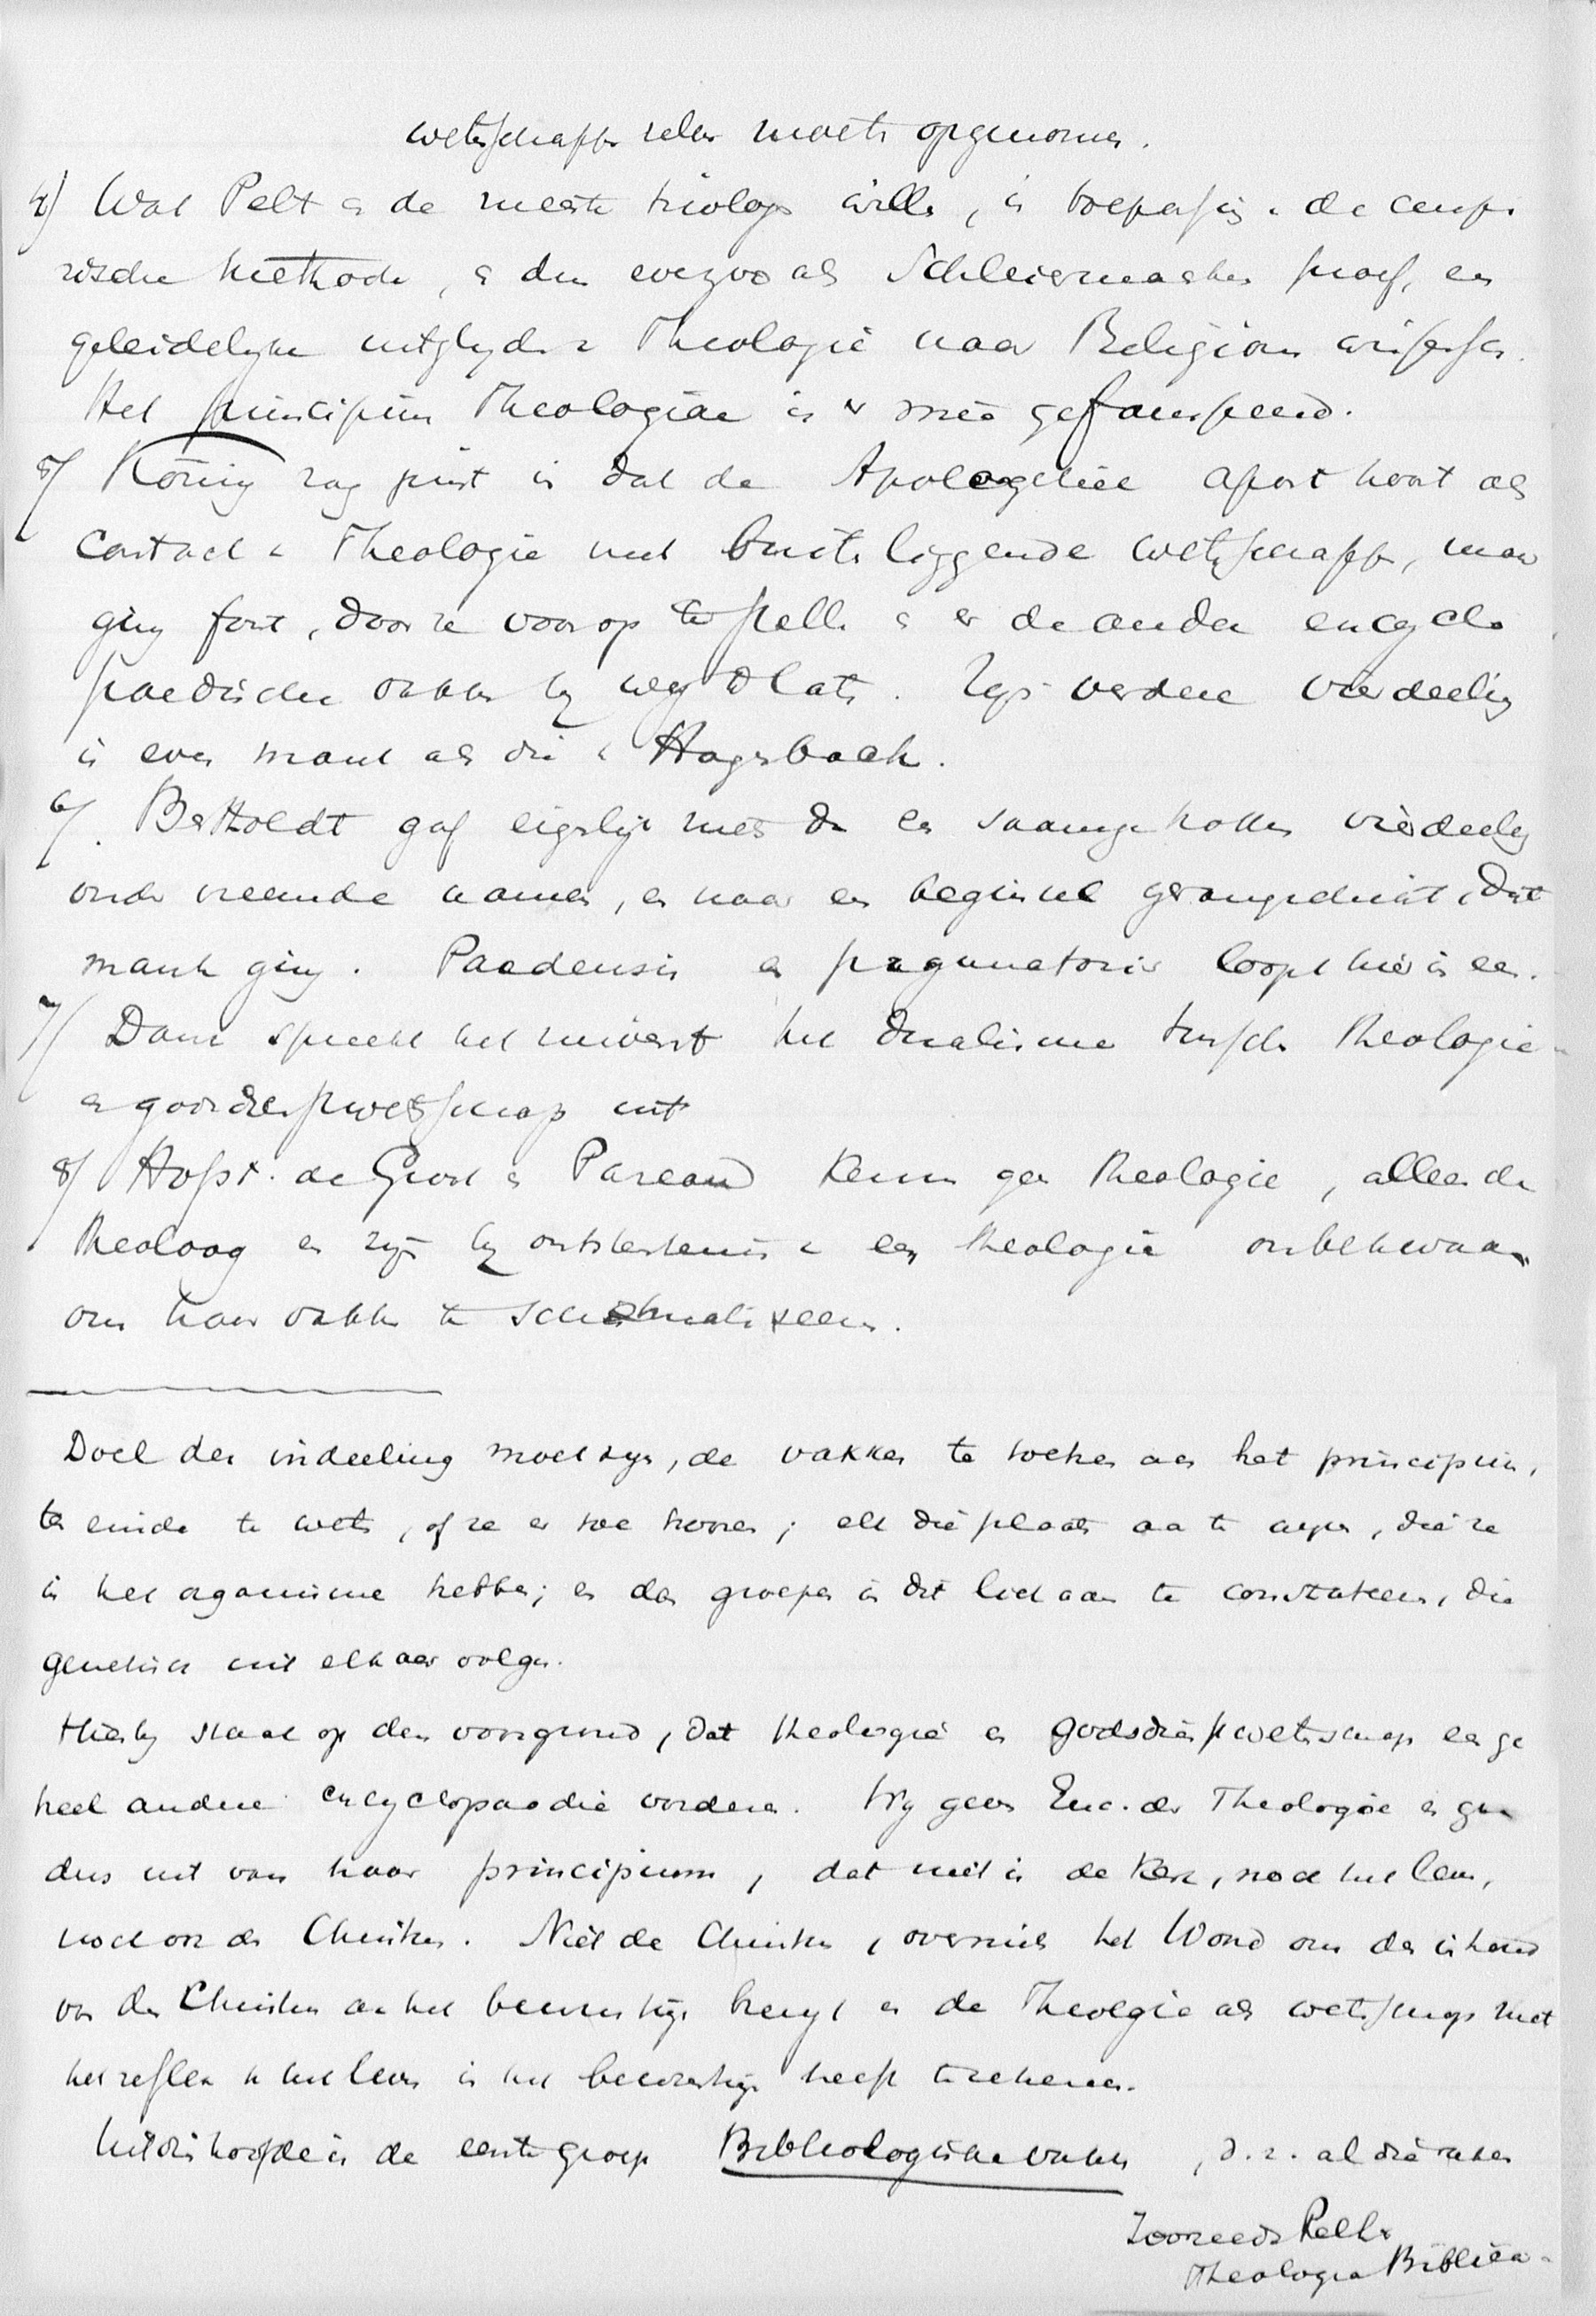 wetenschappen zelve moeten opgenomen.
4) Wat Pelt en de meeste theologen willen, is toepassing v. de empi
rische methode, en dus evenzoo als Schleiermacher proef, een
geleidelijke uitglijden v Theologie naar Religions wissensch.
Het principium Theologiae is er mee gefausseerd.
5/ König zag juist in dat de Apologetiek apart hoort als
contact v Theologie met buiten liggende wetenschappen, maar
ging fout, door ze voorop te stellen en er de andere encyclo
paedische vakken bij weg te laten. Zijn verdere vierdeeling
is even mank als die v Hagenbach.
6/. Bertholdt gaf eigenlijk niets dan een saamgetrokken vierdeeling
onder vreemde namen, en naar een beginsel gerangschikt, dat
mank ging. Paedeusis en pragmatosis loopt hier in een.
7/ Danz spreekt het zuiverst het dualisme tusschen theologie
en godsdienstwetenschap uit
8/ Hofst. de Groot en Pareau kennen geen theologie, alleen den
theoloog en zijn bij ontstentenis v een theologie onbekwaam
om haar vakken te schematiseeren.
Doel der indeeling moet zijn, de vakken te toetsen aan het principium,
ten einde te weten, of ze er toe hooren; elk die plaats aan te wijzen, die ze
in het organisme hebben; en dan groepen in dit lichaam te constateeren, die
genetisch uit elkaar volgen.
Hierbij staat op den voorgrond, dat theologie en godsdienstwetenschap een ge
heel andere encyclopaedie vorderen. Wij geven Enc. der Theologie en gaan
dus uit van haar principium, dat niet is de Kerk, noch het leven,
noch ook de Christus. Niet de Christus, overmits het Woord ons den inhoud
van den Christus in het bewustzijn brengt en de Theologie als wetenschap met
het reflex v het leven in het bewustzijn heeft te rekenen.
Uit dien hoofde is de eerste groep Bibliologische vakken, d.z. al die vakken
Zooreeds Pelt
Theologia Biblica